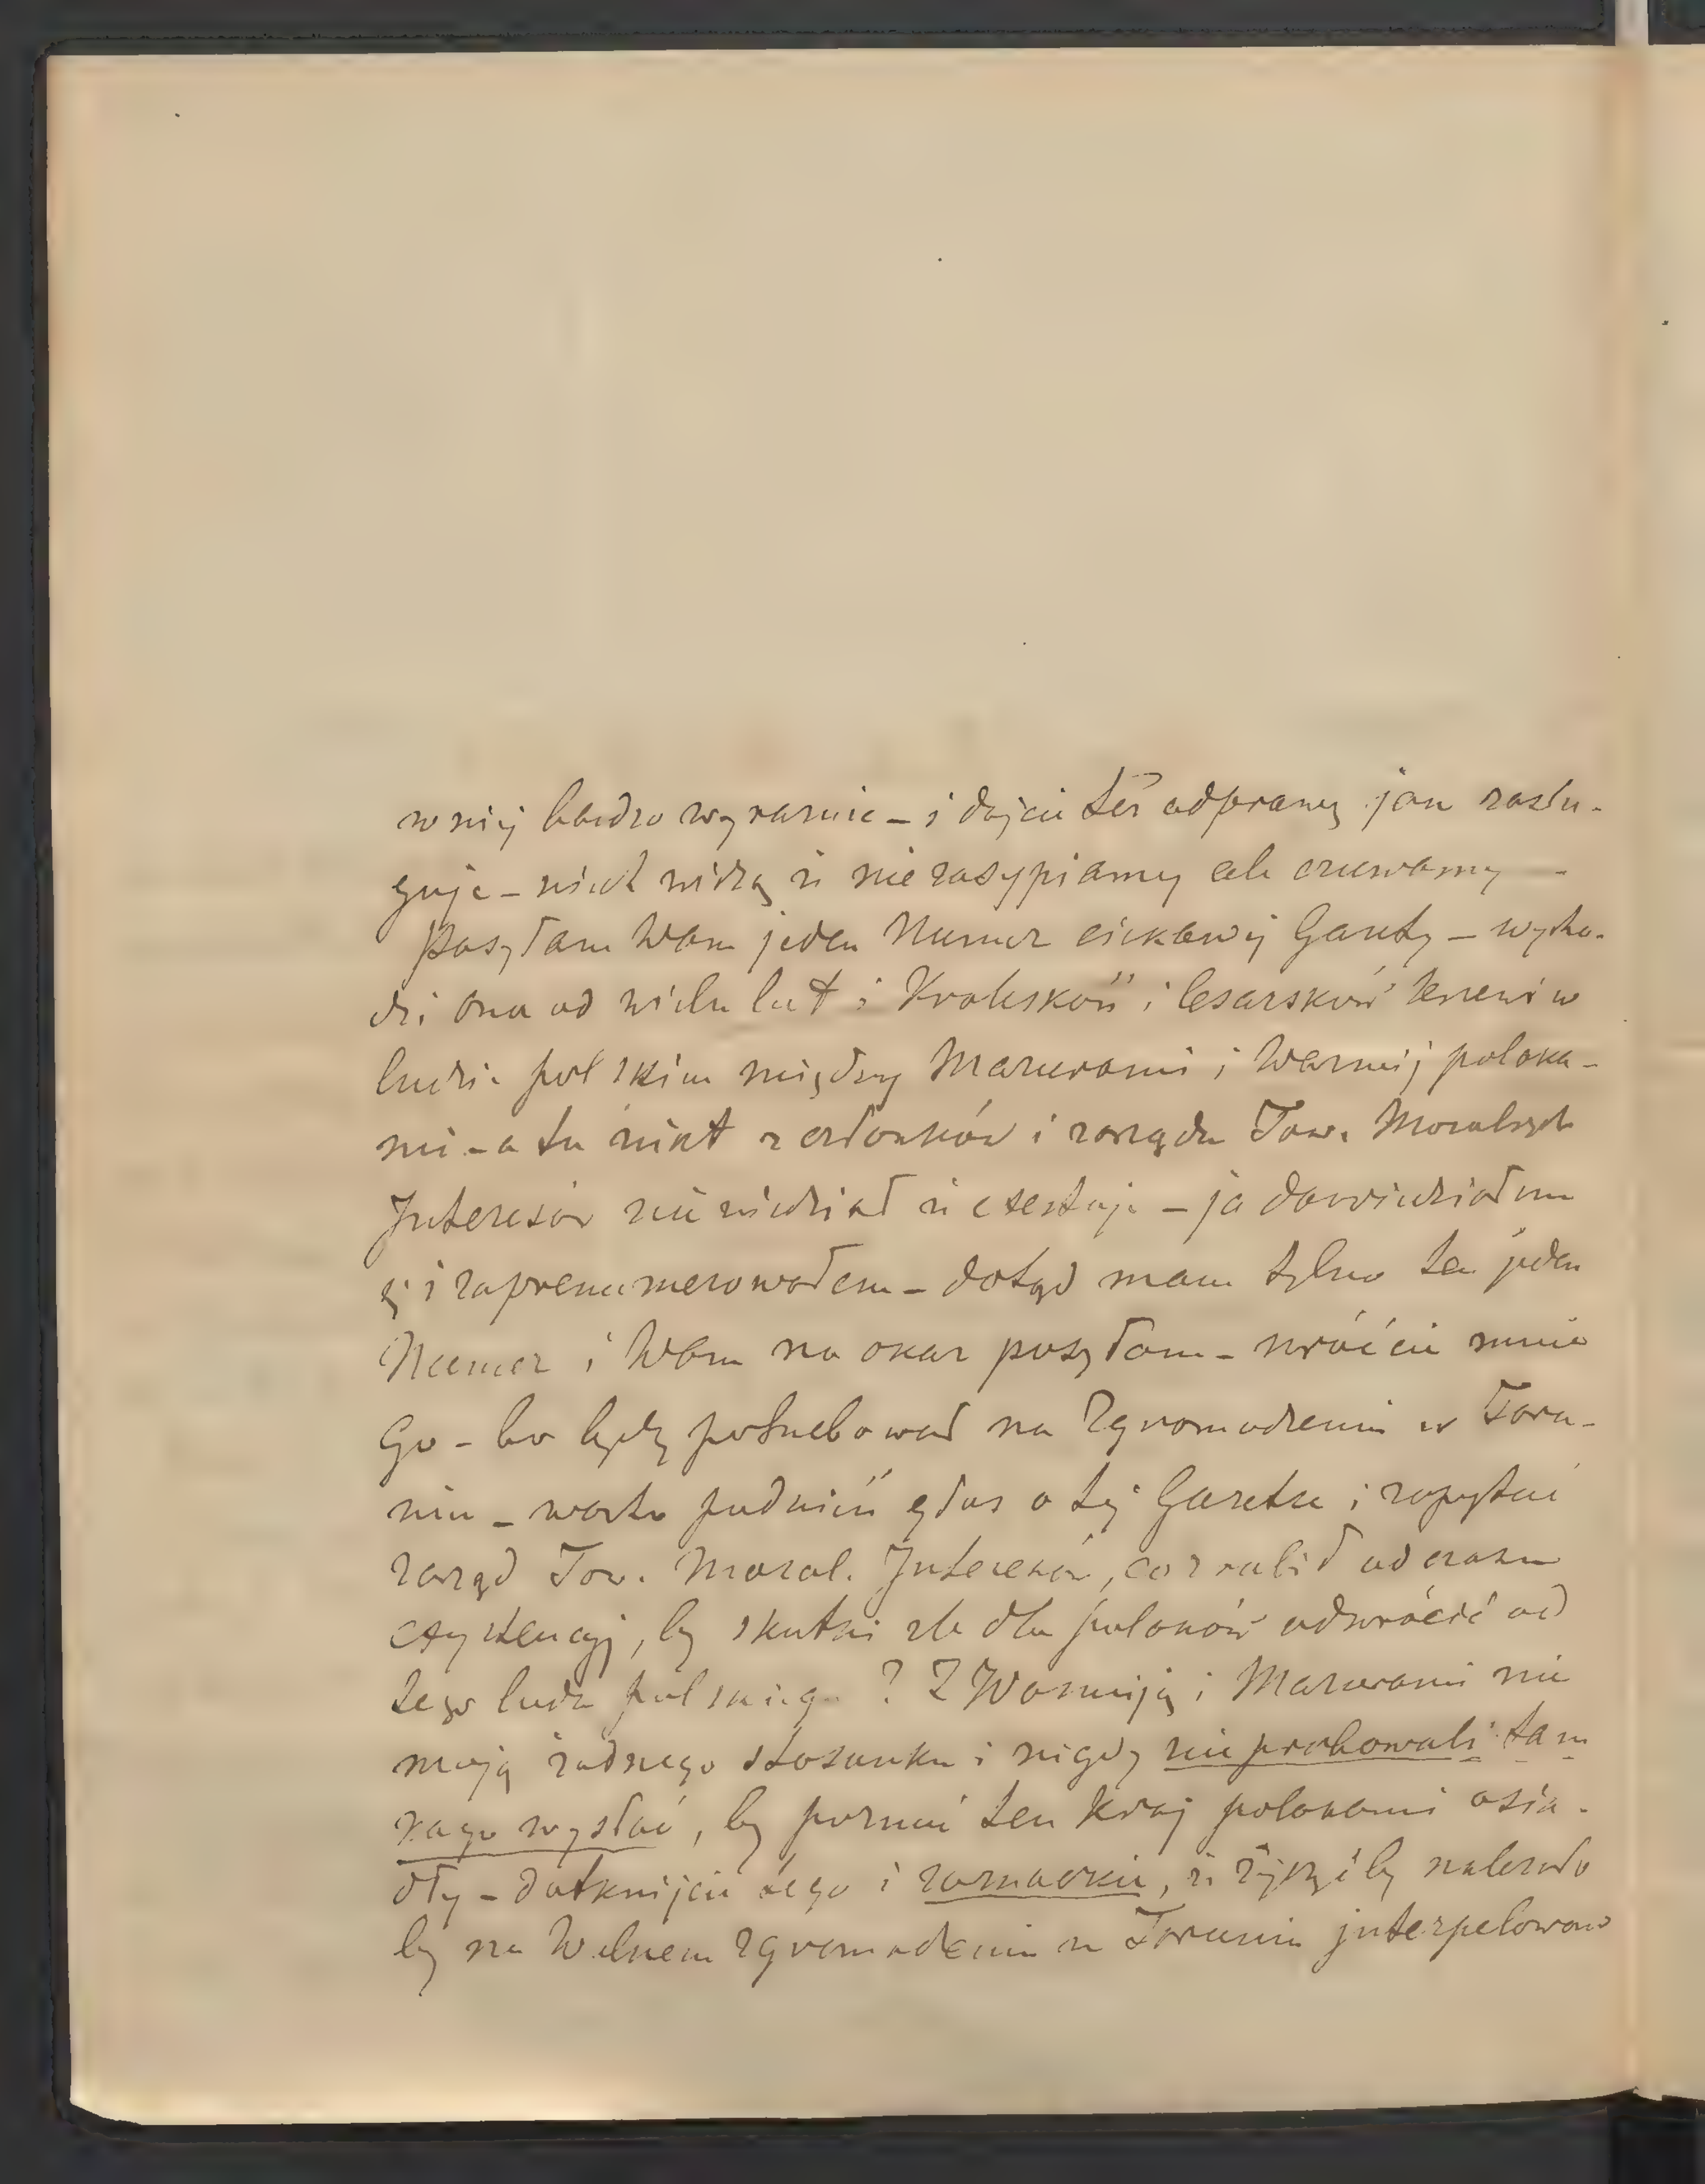 w niéj bardzo wyraznie – i dajcie téż odprawę jak zasłu-
guje – niech widzą iż nie zasypiamy ale czuwamy –
Posyłam Wam jeden Numer ciekawéj Gazety – wycho-
dzi ona od wielu lat i Krolskość i Cesarskość krzewi w
ludzie polskim między Mazurami i Warmij polaka-
mi – a tu nikt z członków i zarządu Tow. Moralnych
Interesów nie wiedział iż exestuje – ja dowiedziałem
i zaprenumerowałem – dotąd mam tylko ten jeden
Numer i Wam na okaz posyłam – wróćcie mnie
go – bo będę potrzebował na Zgromadzeniu w Toru-
niu – warto podnieść głos o téj Gazetce i zapytać
zarząd Tow. Moral. Interesów, co zrobił od czasu
exystencyj, by skutki złe dla polaków odwrócić od
tego ludu polskiego ? Z Warmiją i Mazurami nie
mają żadnego stosunku i nigdy nie probowali tam
kago wysłać, by poznać ten kraj polakami osia-
dły – dotknijcie tego i zaznaczcie, iż należało
by na Walnem Zgromadzeniu w Toruniu interpelowano